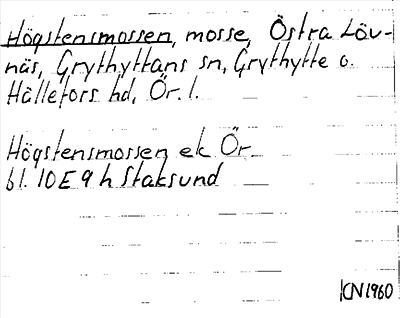 Högstensmossen, mosse, Östra Löv-
näs, Grythyttans sn, Grythytte o.
Hällefors hd, Ör. l.
Högstensmossen ek Ör.
bl. 10E 9 h Staksund
CN 1960